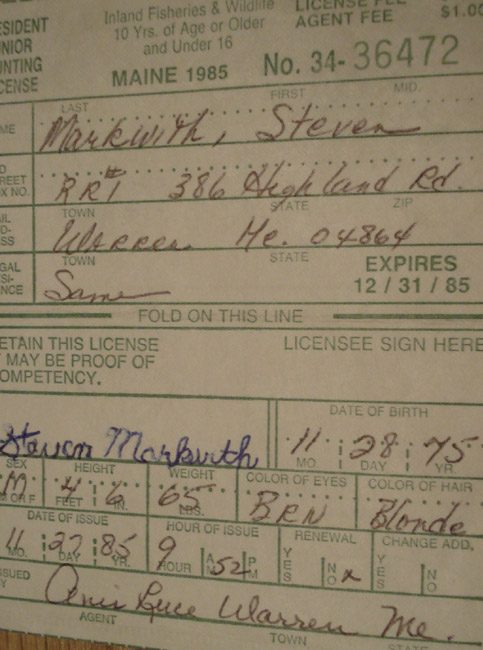 Inland Fisheries & Wildlife
10 Yrs. of Age or Older
and Under 16
LICENSE FEE
AGENT FEE $1.00
ESIDENT
NIOR
NTING
CENSE
MAINE 1985 No. 34-36472
LAST FIRST MID.
ME Markwith, Steven
REET X NO. RR#1 386 Highland Rd.
TOWN STATE ZIP
Warren Me. 04864
TOWN STATE
Same
EXPIRES
12 / 31 / 85
FOLD ON THIS LINE
ETAIN THIS LICENSE
MAY BE PROOF OF
OMPETENCY.
LICENSEE SIGN HERE
Steven Markwith
DATE OF BIRTH
11 28 75
MO. DAY YR.
SEX HEIGHT WEIGHT COLOR OF EYES COLOR OF HAIR
M 4 6 65 BRN Blonde
M OR F FEET IN. LBS.
DATE OF ISSUE HOUR OF ISSUE RENEWAL CHANGE ADD.
11 27 85 9 52 YES NO x YES NO
MO. DAY YR. HOUR AM PM
SSUED
Y Warren Me.
AGENT TOWN STATE